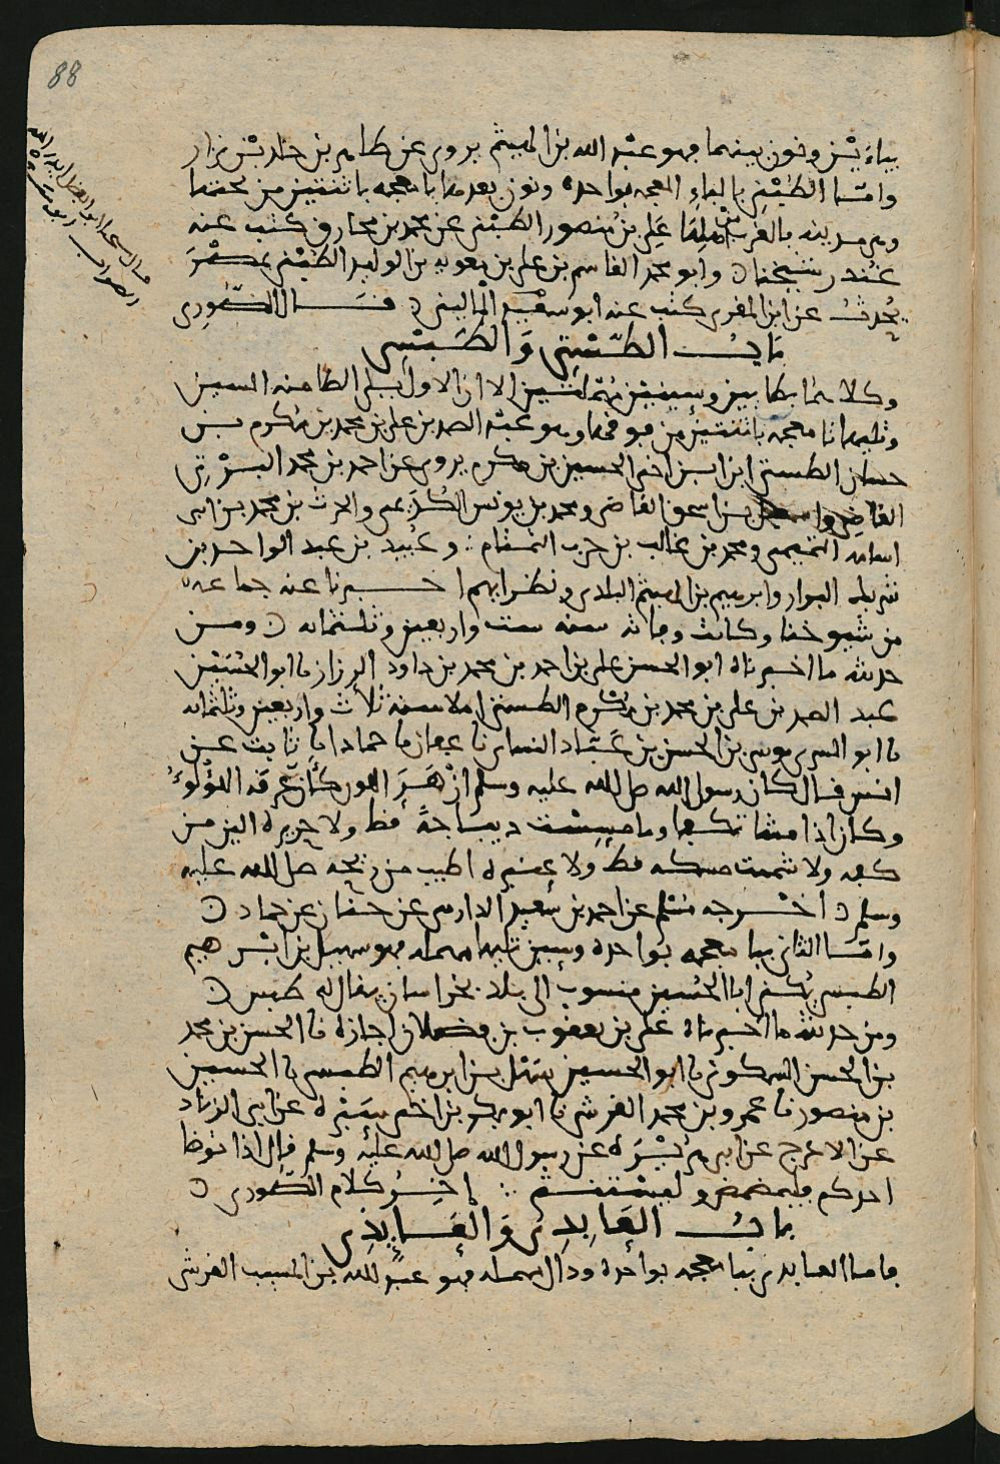 88
بياءين ونون بينهما فهو عبد الله بن الهيثم يروي عن طاهر بن خالد بن نزار
واما الطبني بالباء المعجمة بواحدة ونون بعدها يا معجمة باثنتين من تحتها
وهي مدينة بالغرب منها علي بن منصور الطبني عن محمد بن مخارق كتب عنه
غندر شيخنا وابو محمد القاسم بن علي بن معوية بن الوليد الطبني بمصر
يحدث عن ابن المقري كتب عنه ابو سعيد الماليني قال الصوري
قال شيخنا ابو الفضل
الصواب ابو سعد
باب الطستي والطبسي
وكلاهما بطا وسين الا ان الاول يلي الطا منه السين
وتليها تا معجمة باثنتين من فوقها وهو عبد الصمد بن علي بن محمد بن مكرم بن
حسان الطستي ابن ابن اخي الحسين بن مكرم يروي عن احمد بن محمد البرتي
القاضي واسمعيل بن اسحق القاضي ومحمد بن يونس الكديمي والحرث بن محمد بن ابي
اسامه التميمي ومحمد بن غالب بن حرب التمتام وعبيد بن عبد الواحد بن
شريك البزار وابرهيم بن الهيثم البلدي ونظرايهم اخبرنا عنه جماعة
من شيوخنا وكانت وفاته سنة ست واربعين وثلثمائه ومن
حديثه ما اخبرناه ابو الحسن علي بن احمد بن محمد بن داود الرزاز نا ابو الحسين
عبد الصمد بن علي بن محمد بن مكرم الطستي املا سنة ثلاث واربعين وثلثمائه
نا ابو السري موسى بن الحسن بن عباد النسائي نا عفان نا حماد انا ثابت عن
انس قال كان رسول الله صلى الله عليه وسلم ازهر اللون كأن عرقه اللؤلؤ
وكان اذا مشا تكفا وما مسست ديباجة قط ولا حريرة الين من
كفه ولا شممت مسكه قط ولا عنبرة اطيب من ريحه صلى الله عليه
وسلم اخرجه مسلم عن احمد بن سعيد الدارمي عن حبان عن حماد
واما الثاني ببا معجمة بواحدة وسين تليها مهملة فهو سهل بن ابرهيم
الطبسي يكنى ابا الحسين منسوب الى بلد بخراسان يقال له طبس
ومن حديثه ما اخبرناه علي بن يعقوب بن اجازة نا الحسن بن محمد
بن الحسن السكوني نا ابو الحسين سهل بن ابرهيم الطبسي نا الحسين
بن منصور نا عمرو بن محمد القرشي نا ابو بكر بن ابي سبرة عن ابي الزناد
عن الاعرج عن ابي هريرة عن رسول الله صلى الله عليه وسلم قال اذا توضا
احدكم فليمضمض وليستنثر اخر كلام الصوري
باب العابدي والعايذي
فاما العابدي ببا معجمة بواحدة ودال مهملة فهو عبد الله بن المسيب القرشي